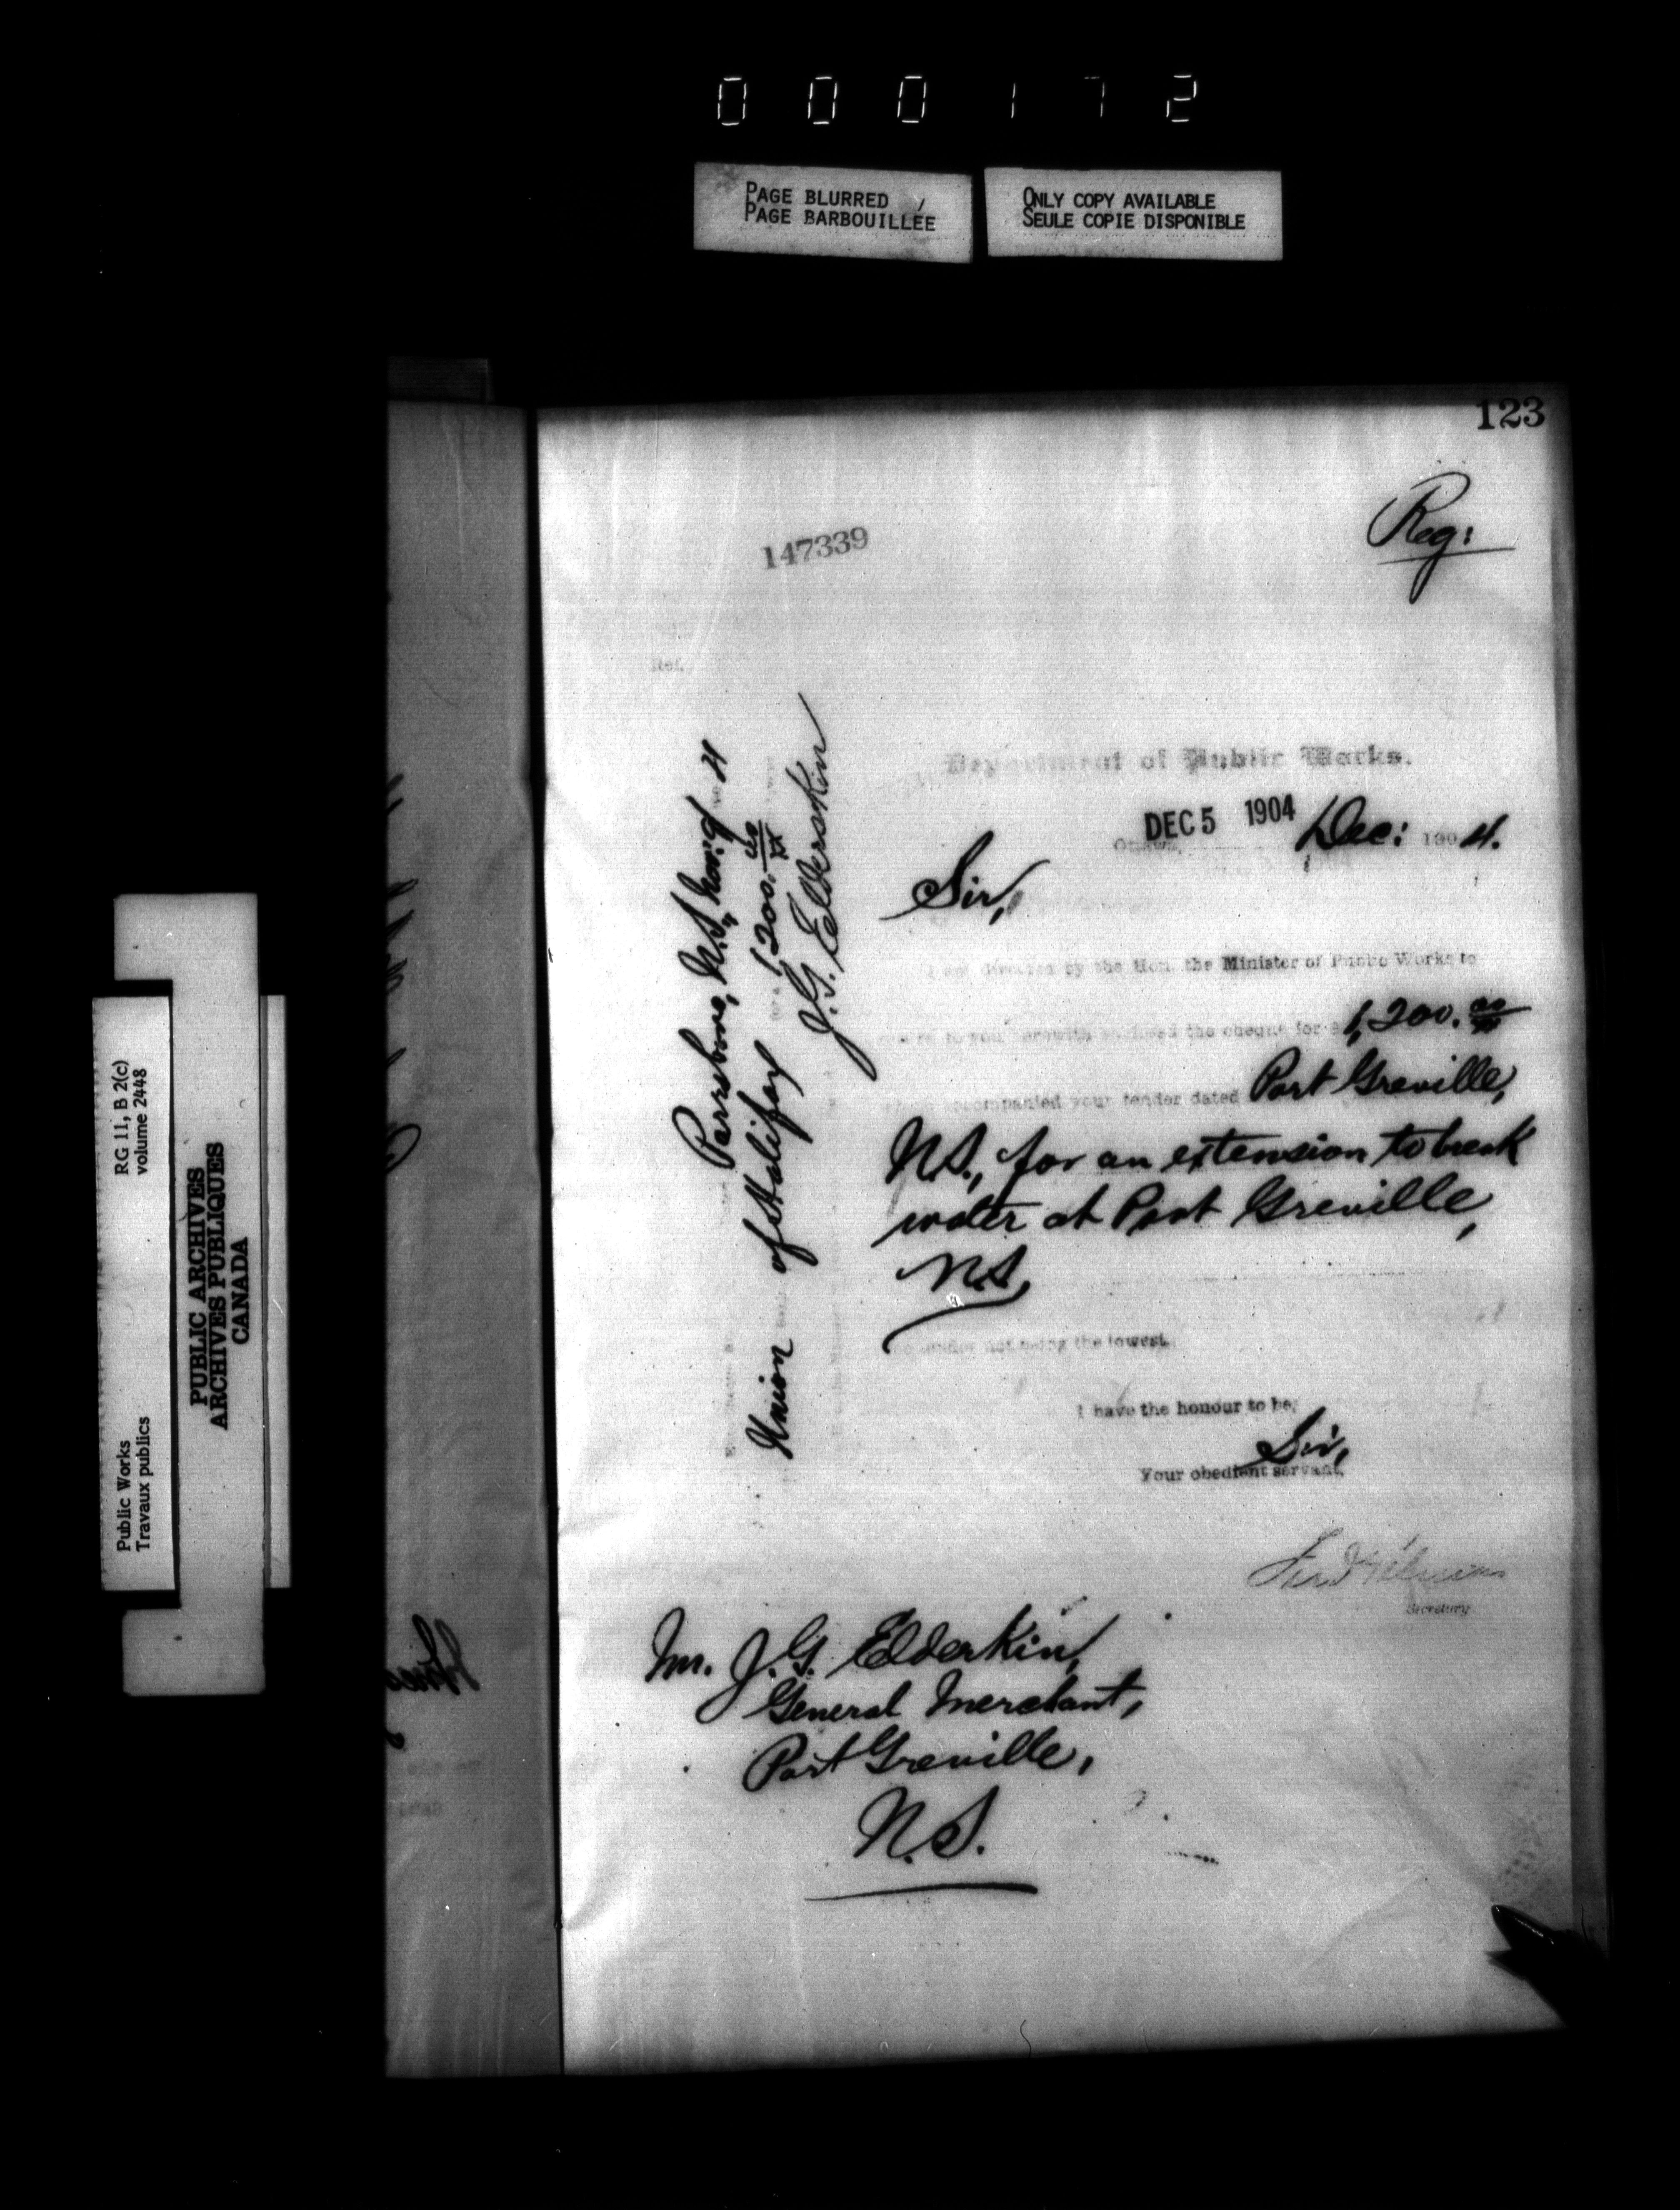 000172
PAGE BLURRED
PAGE BARBOUILLÉE
ONLY COPY AVAILABLE
SEULE COPIE DISPONIBLE
123
Reg:
147339
Ref.
Department of Public Works.
Ottawa, DEC 5 1904 Dec: 1904.
Sir,
I am directed by the Hon. the Minister of Public Works to
to you herewith enclosed the cheque for $1,200.00/xx
accompanied your tender dated Port Greville,
N.S., for an extension to break
water at Port Greville,
N.S.
tender not being the lowest.
I have the honour to be,
Sir,
Your obedient servant,
Secretary
Mr. J. G. Elderkin,
General Merchant,
Port Greville,
N.S.
Parrsboro, N.S., Nov. 9 1904
Union of Halifax for $ 1,200.00/xx
J. G. Elderkin
Public Works
Travaux publics
RG 11, B 2(c)
volume 2448
PUBLIC ARCHIVES
ARCHIVES PUBLIQUES
CANADA